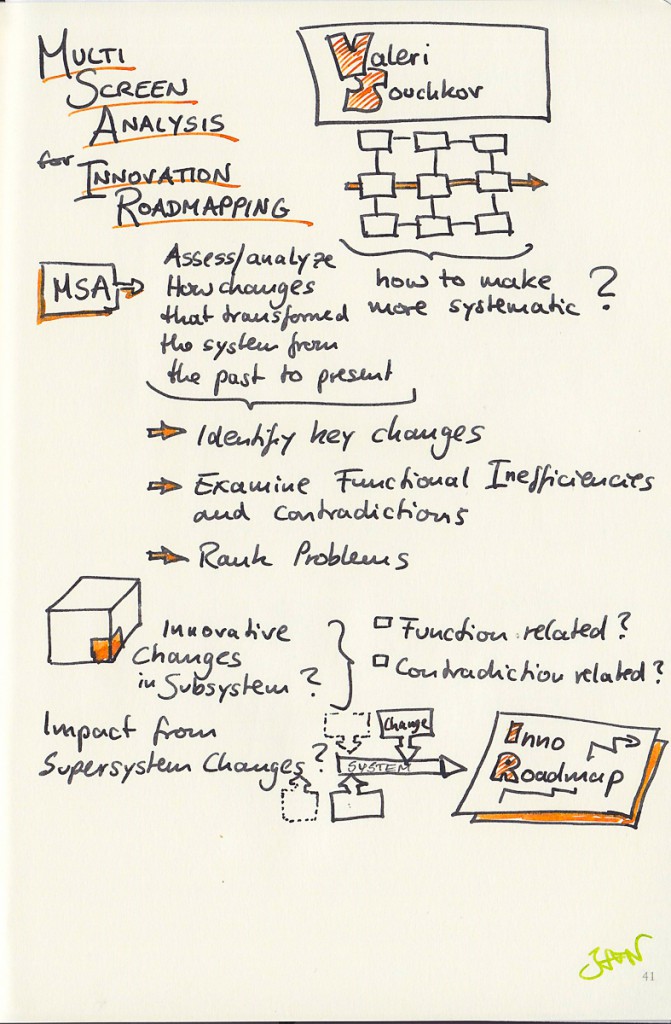 MULTI
SCREEN
ANALYSIS
for INNOVATION
ROADMAPPING
Valeri
Souchkov
MSA
Assess/analyze
How changes
that transformed
the system from
the past to present
how to make
more systematic ?
Identify key changes
Examine Functional Inefficiencies
and contradictions
Rank Problems
Innovative
Changes
in Subsystem ?
Function related ?
Contradiction related ?
Impact from
Supersystem Changes ?
Change
SYSTEM
Inno
Roadmap
JEAN
41